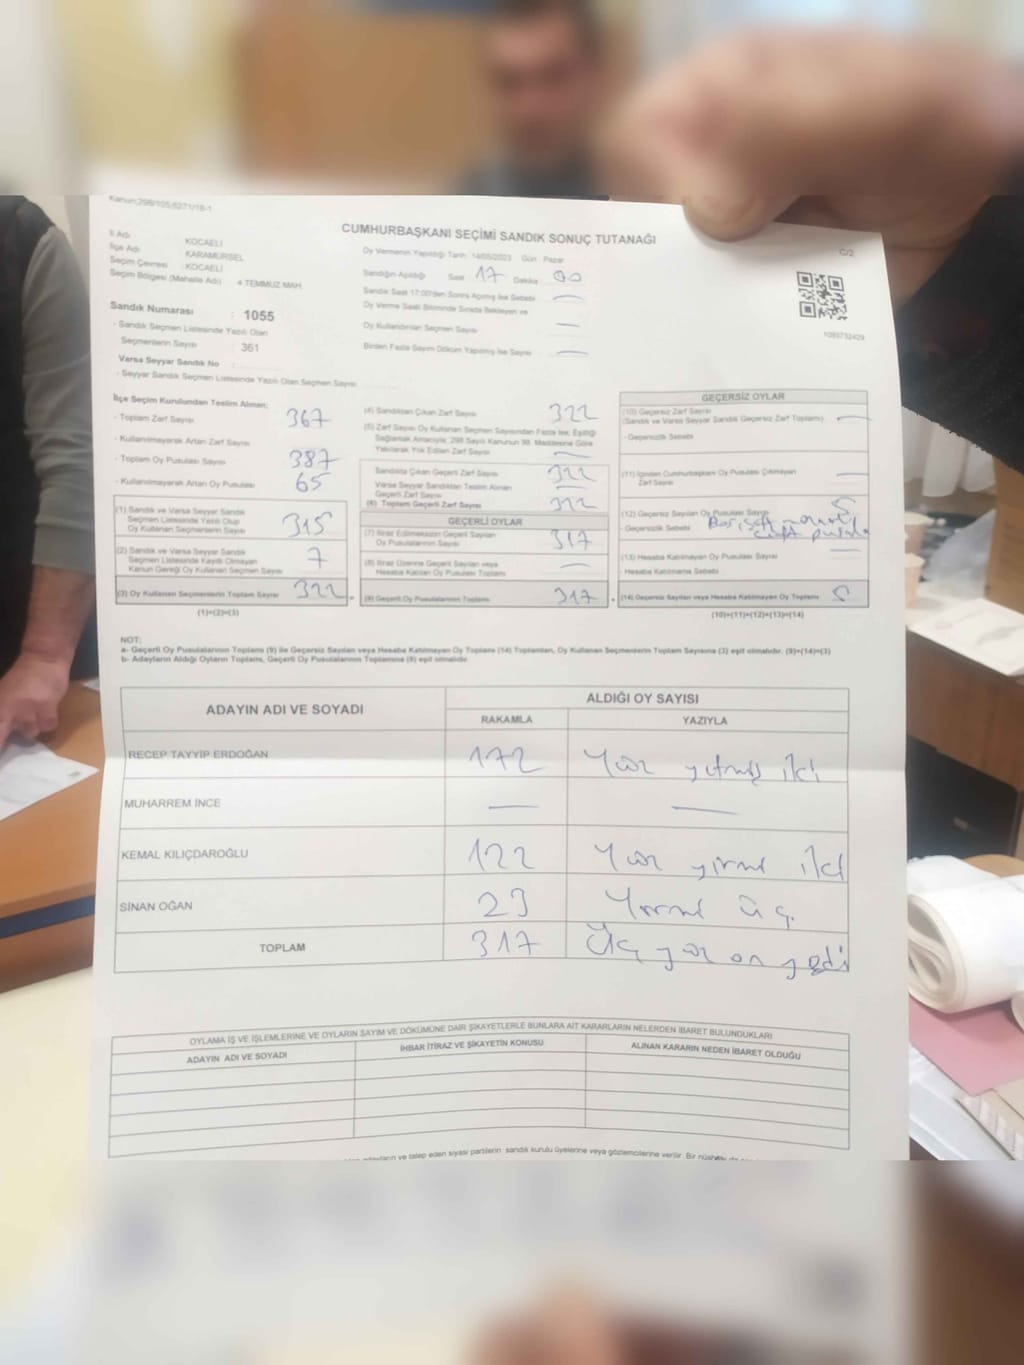 Kanun;298/105;6271/18-1
CUMHURBAŞKANI SEÇİMİ SANDIK SONUÇ TUTANAĞI
C/2
İl Adı : KOCAELİ
İlçe Adı : KARAMÜRSEL
Seçim Çevresi : KOCAELİ
Seçim Bölgesi (Mahalle Adı) : 4 TEMMUZ MAH.
Sandık Numarası : 1055
- Sandık Seçmen Listesinde Yazılı Olan
Seçmenlerin Sayısı : 361
Varsa Seyyar Sandık No :
- Seyyar Sandık Seçmen Listesinde Yazılı Olan Seçmen Sayısı
Oy Vermenin Yapıldığı Tarih: 14/05/2023 Gün: Pazar
Sandığın Açıldığı Saat 17 Dakika 00
Sandık Saat 17:00'den Sonra Açılmış İse Sebebi —
Oy Verme Saati Bitiminde Sırada Bekleyen ve
Oy Kullandırılan Seçmen Sayısı —
Birden Fazla Sayım Döküm Yapılmış İse Sayısı —
1093732429
İlçe Seçim Kurulundan Teslim Alınan;
- Toplam Zarf Sayısı 367
- Kullanılmayarak Artan Zarf Sayısı
- Toplam Oy Pusulası Sayısı 387
- Kullanılmayarak Artan Oy Pusulası 65
(1) Sandık ve Varsa Seyyar Sandık
Seçmen Listesinde Yazılı Olup
Oy Kullanan Seçmen Sayısı 315
(2) Sandık ve Varsa Seyyar Sandık
Seçmen Listesinde Kayıtlı Olmayan
Kanun Gereği Oy Kullanan Seçmen Sayısı 7
(3) Oy Kullanan Seçmenlerin Toplam Sayısı 322
(1)+(2)=(3)
(4) Sandıktan Çıkan Zarf Sayısı 322
(5) Zarf Sayısı Oy Kullanan Seçmen Sayısından Fazla İse, Eşitliği
Sağlamak Amacıyla, 298 Sayılı Kanunun 98. Maddesine Göre
Yakılarak Yok Edilen Zarf Sayısı —
Sandıkta Çıkan Geçerli Zarf Sayısı 322
Varsa Seyyar Sandıktan Teslim Alınan
Geçerli Zarf Sayısı —
(6) Toplam Geçerli Zarf Sayısı 322
GEÇERLİ OYLAR
(7) İtiraz Edilmeksizin Geçerli Sayılan
Oy Pusulalarının Sayısı 317
(8) İtiraz Üzerine Geçerli Sayılan veya
Hesaba Katılan Oy Pusulası Toplamı —
(9) Geçerli Oy Pusulalarının Toplamı 317
GEÇERSİZ OYLAR
(10) Geçersiz Zarf Sayısı
(Sandık ve Varsa Seyyar Sandık Geçersiz Zarf Toplamı) —
- Geçersizlik Sebebi
(11) İçinden Cumhurbaşkanı Oy Pusulası Çıkmayan
Zarf Sayısı —
(12) Geçersiz Sayılan Oy Pusulası Sayısı 5
- Geçersizlik Sebebi
(13) Hesaba Katılmayan Oy Pusulası Sayısı —
- Hesaba Katılmama Sebebi
(14) Geçersiz Sayılan veya Hesaba Katılmayan Oy Toplamı 5
(10)+(11)+(12)+(13)=(14)
NOT:
a- Geçerli Oy Pusulalarının Toplamı (9) ile Geçersiz Sayılan veya Hesaba Katılmayan Oy Toplamı (14) Toplamları, Oy Kullanan Seçmenlerin Toplam Sayısına (3) eşit olmalıdır. (9)+(14)=(3)
b- Adayların Aldığı Oyların Toplamı, Geçerli Oy Pusulalarının Toplamına (9) eşit olmalıdır.
ADAYIN ADI VE SOYADI ALDIĞI OY SAYISI
RAKAMLA YAZIYLA
RECEP TAYYİP ERDOĞAN 172 Yüz yetmiş iki
MUHARREM İNCE — —
KEMAL KILIÇDAROĞLU 122 Yüz yirmi iki
SİNAN OĞAN 23 Yirmi üç
TOPLAM 317 Üç yüz on yedi
OYLAMA İŞ VE İŞLEMLERİNE VE OYLARIN SAYIM VE DÖKÜMÜNE DAİR ŞİKAYETLERLE BUNLARA AİT KARARLARIN NELERDEN İBARET BULUNDUKLARI
ADAYIN ADI VE SOYADI İHBAR İTİRAZ VE ŞİKAYETİN KONUSU ALINAN KARARIN NEDEN İBARET OLDUĞU
adayların ve talep eden siyasi partilerin sandık kurulu üyelerine veya gözlemcilerine verilir. Bir